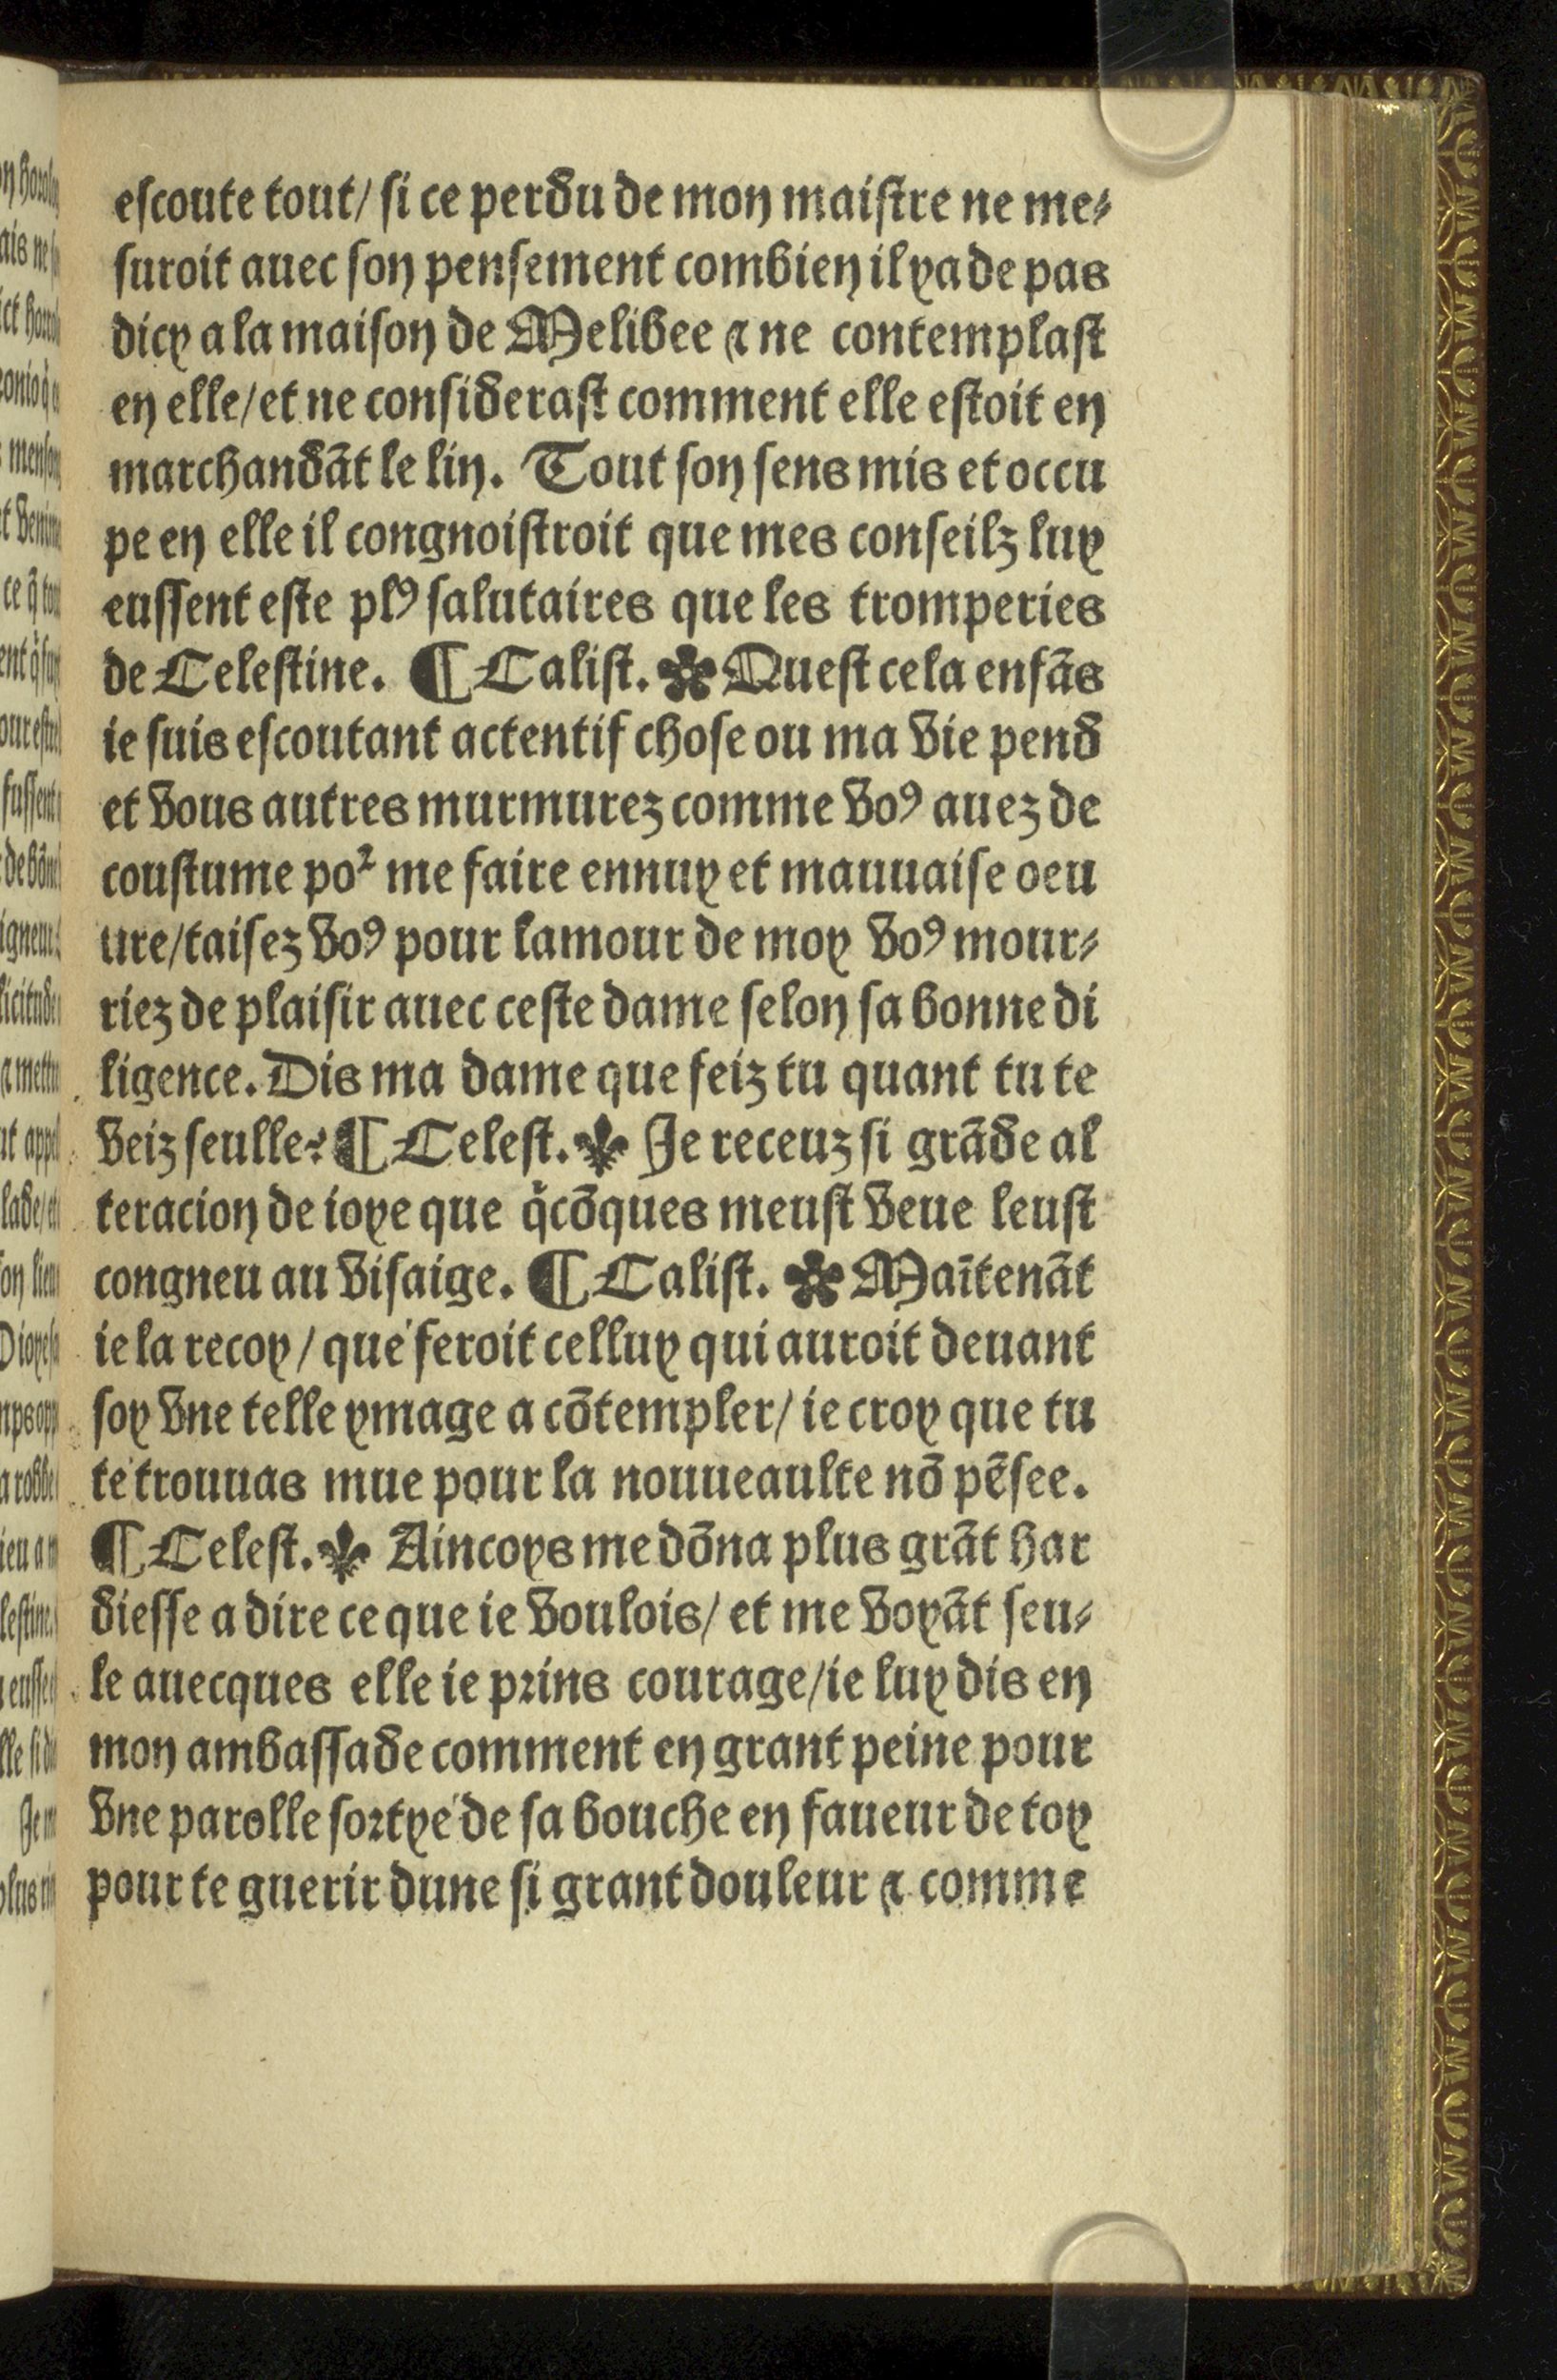 escoute tout/ si ce perdu de mon maistre ne me⸗
suroit auec son pensement combien il ya de pas
dicy a la maison de Melibee ⁊ ne contemplast
en elle/et ne considerast comment elle estoit en
marchandãt le lin. Tout son sens mis et occu
pe en elle il congnoistroit que mes conseilz luy
eussent este plꝰ salutaires que les tromperies
de Celestine. ¶ Calist. ✤ Quest cela enfãs
ie suis escoutant actentif chose ou ma vie pend
et vous autres murmurez comme voꝰ auez de
coustume po² me faire ennuy et mauuaise oeu
ure/taisez voꝰ pour lamour de moy voꝰ mour⸗
riez de plaisir auec ceste dame selon sa bonne di
ligence. Dis ma dame que feiz tu quant tu te
veiz seulle? ¶ Celest. ⚜ Je receuz si grãde al
teracion de ioye que q̇cõques meust veue leust
congneu au visaige. ¶ Calist. ✤ Maĩtenãt
ie la recoy / que feroit celluy qui auroit deuant
soy vne telle ymage a cõtempler/ ie croy que tu
te trouuas mue pour la nouueaulte nõ pẽsee.
¶ Celest. ⚜ Aincoys me dõna plus grãt har
diesse a dire ce que ie voulois/ et me voyãt seu⸗
le auecques elle ie prins courage/ie luy dis en
mon ambassade comment en grant peine pour
vne parolle sortye de sa bouche en faueur de toy
pour te guerir dune si grant douleur ⁊ comme